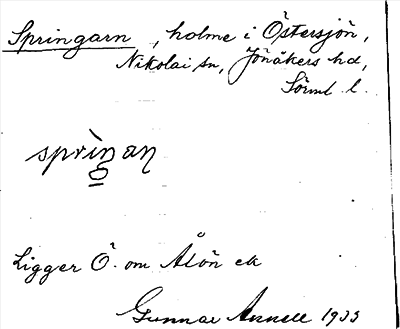 Springarn, holme i Östersjön,
Nikolai sn, Jönåkers hd,
Sörml. l.
sprìŋan
Ligger Ö. om Ålön ek
Gunnar Annell 1933